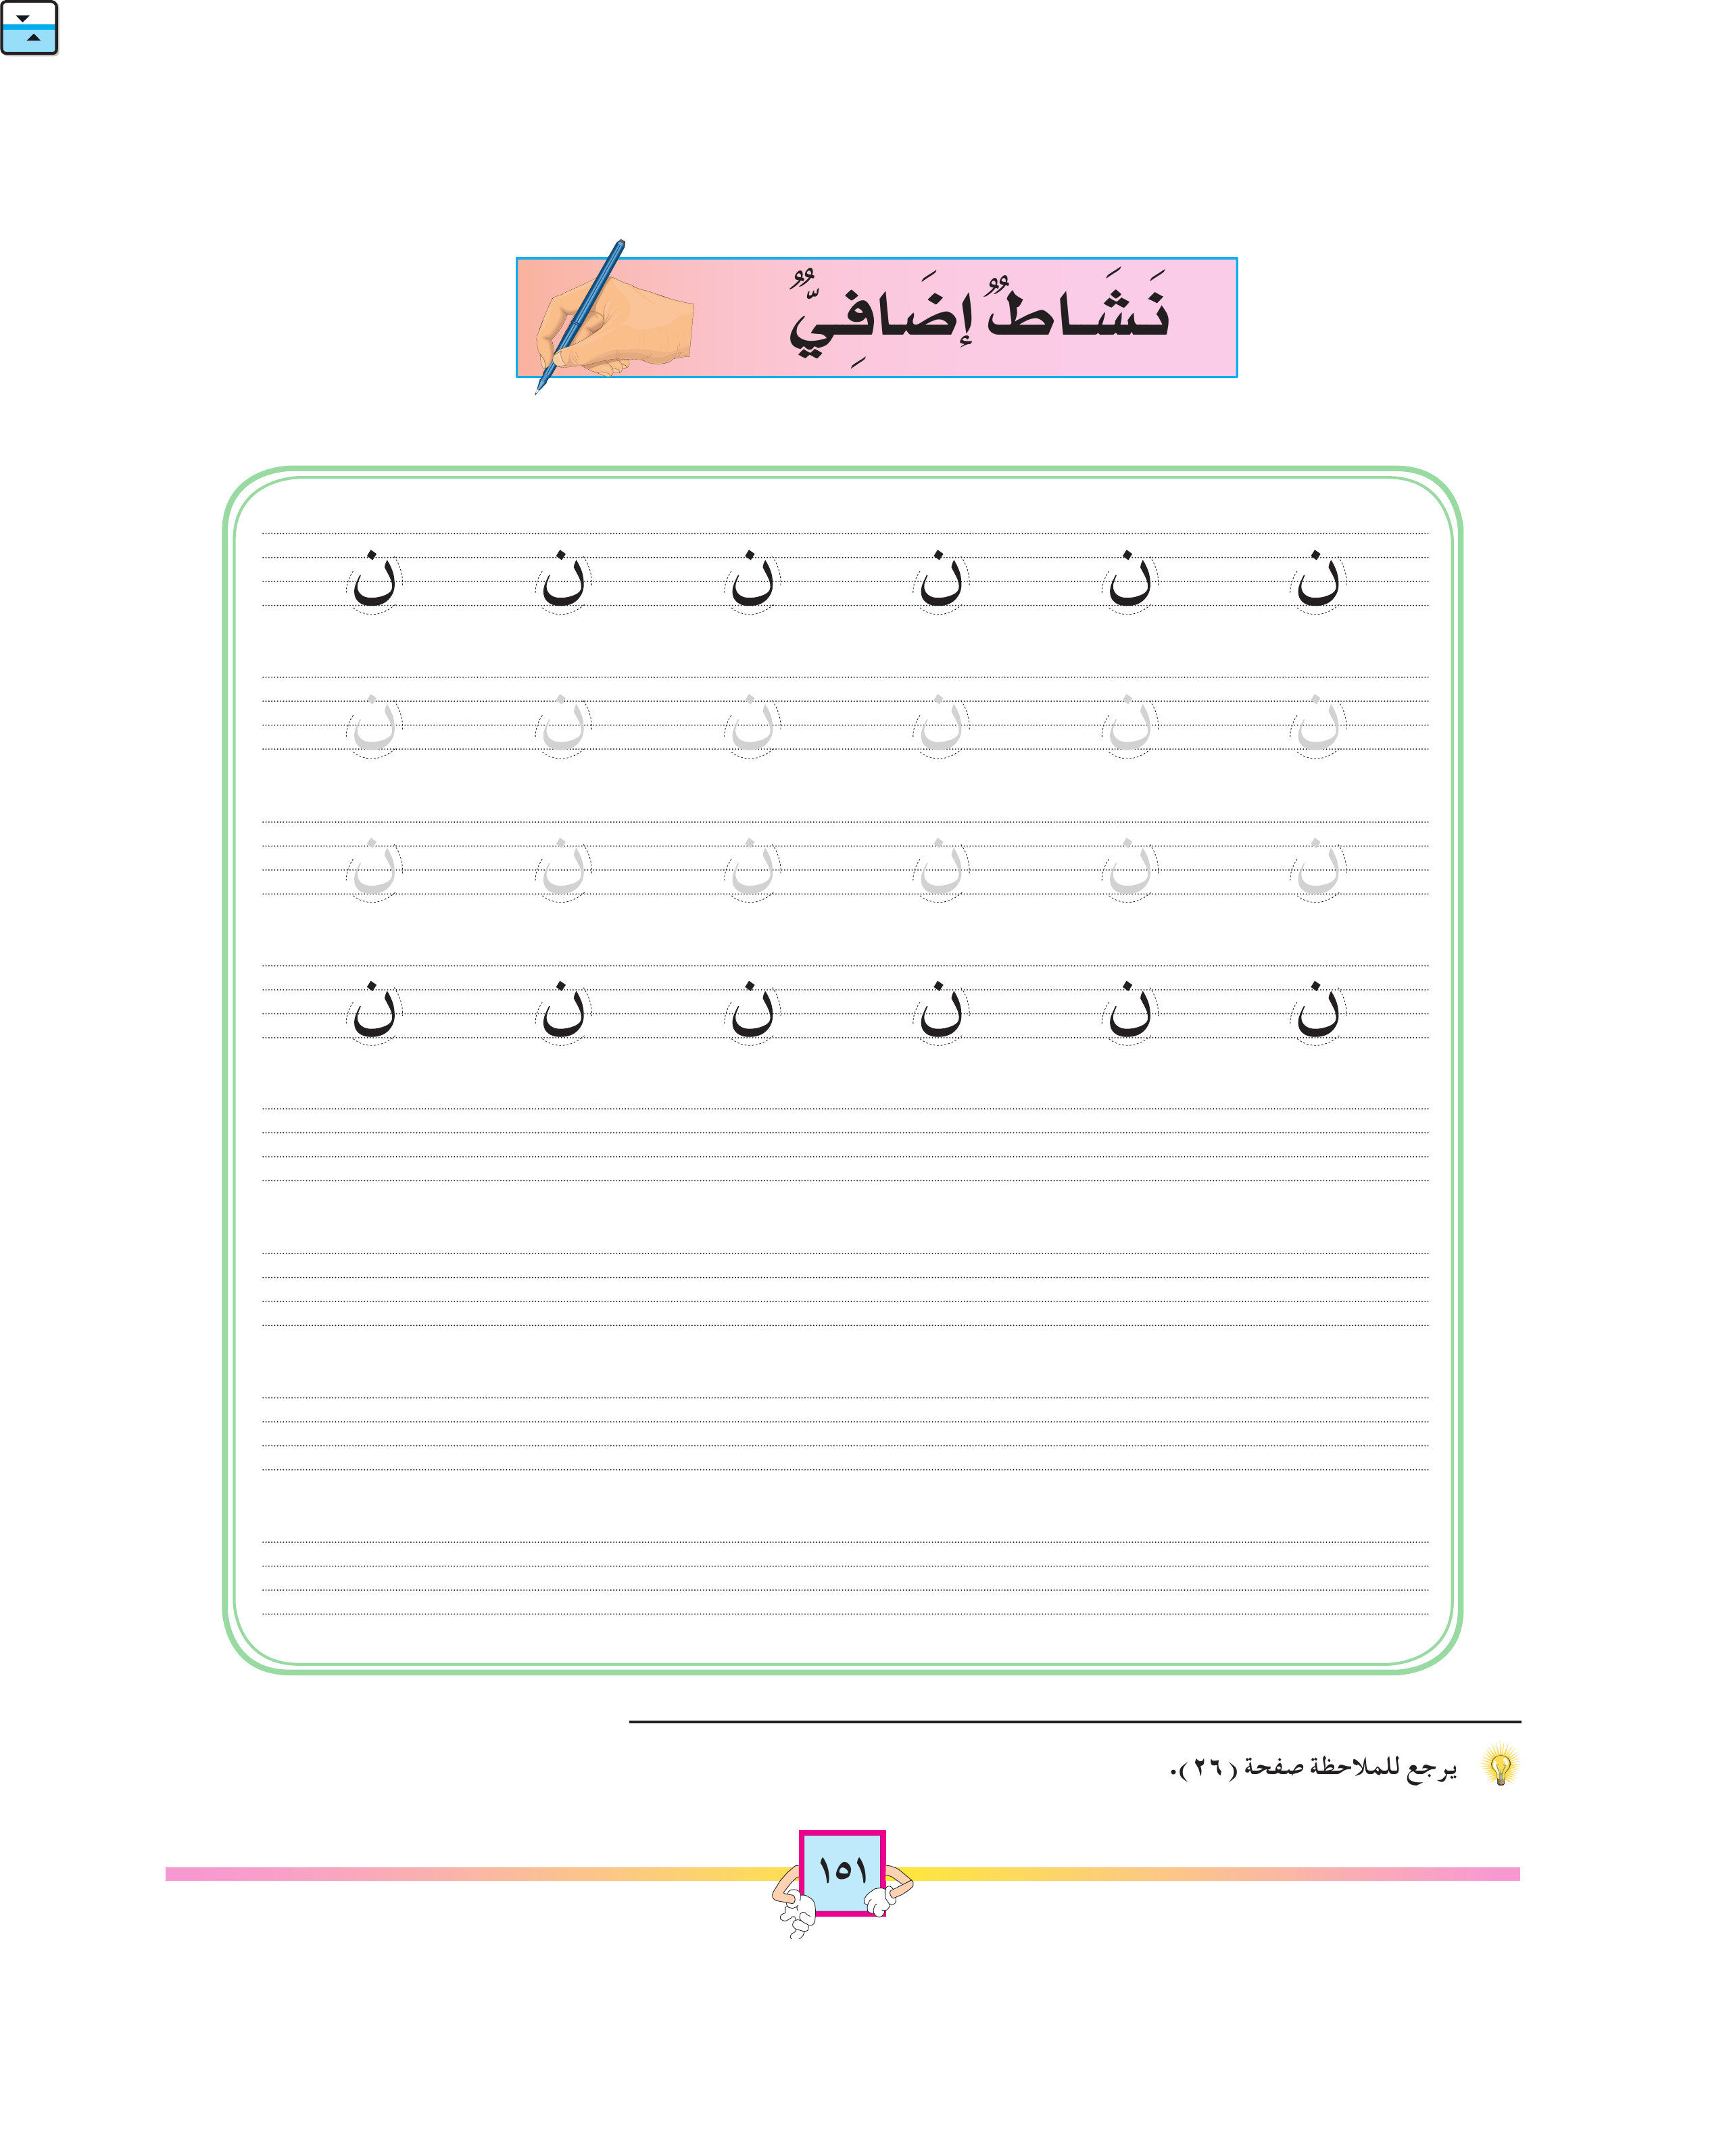 نَشَاطٌ إضَافِيٌّ
ن ن ن ن ن ن
ن ن ن ن ن ن
ن ن ن ن ن ن
ن ن ن ن ن ن
يرجع للملاحظة صفحة (٢٦).
١٥١